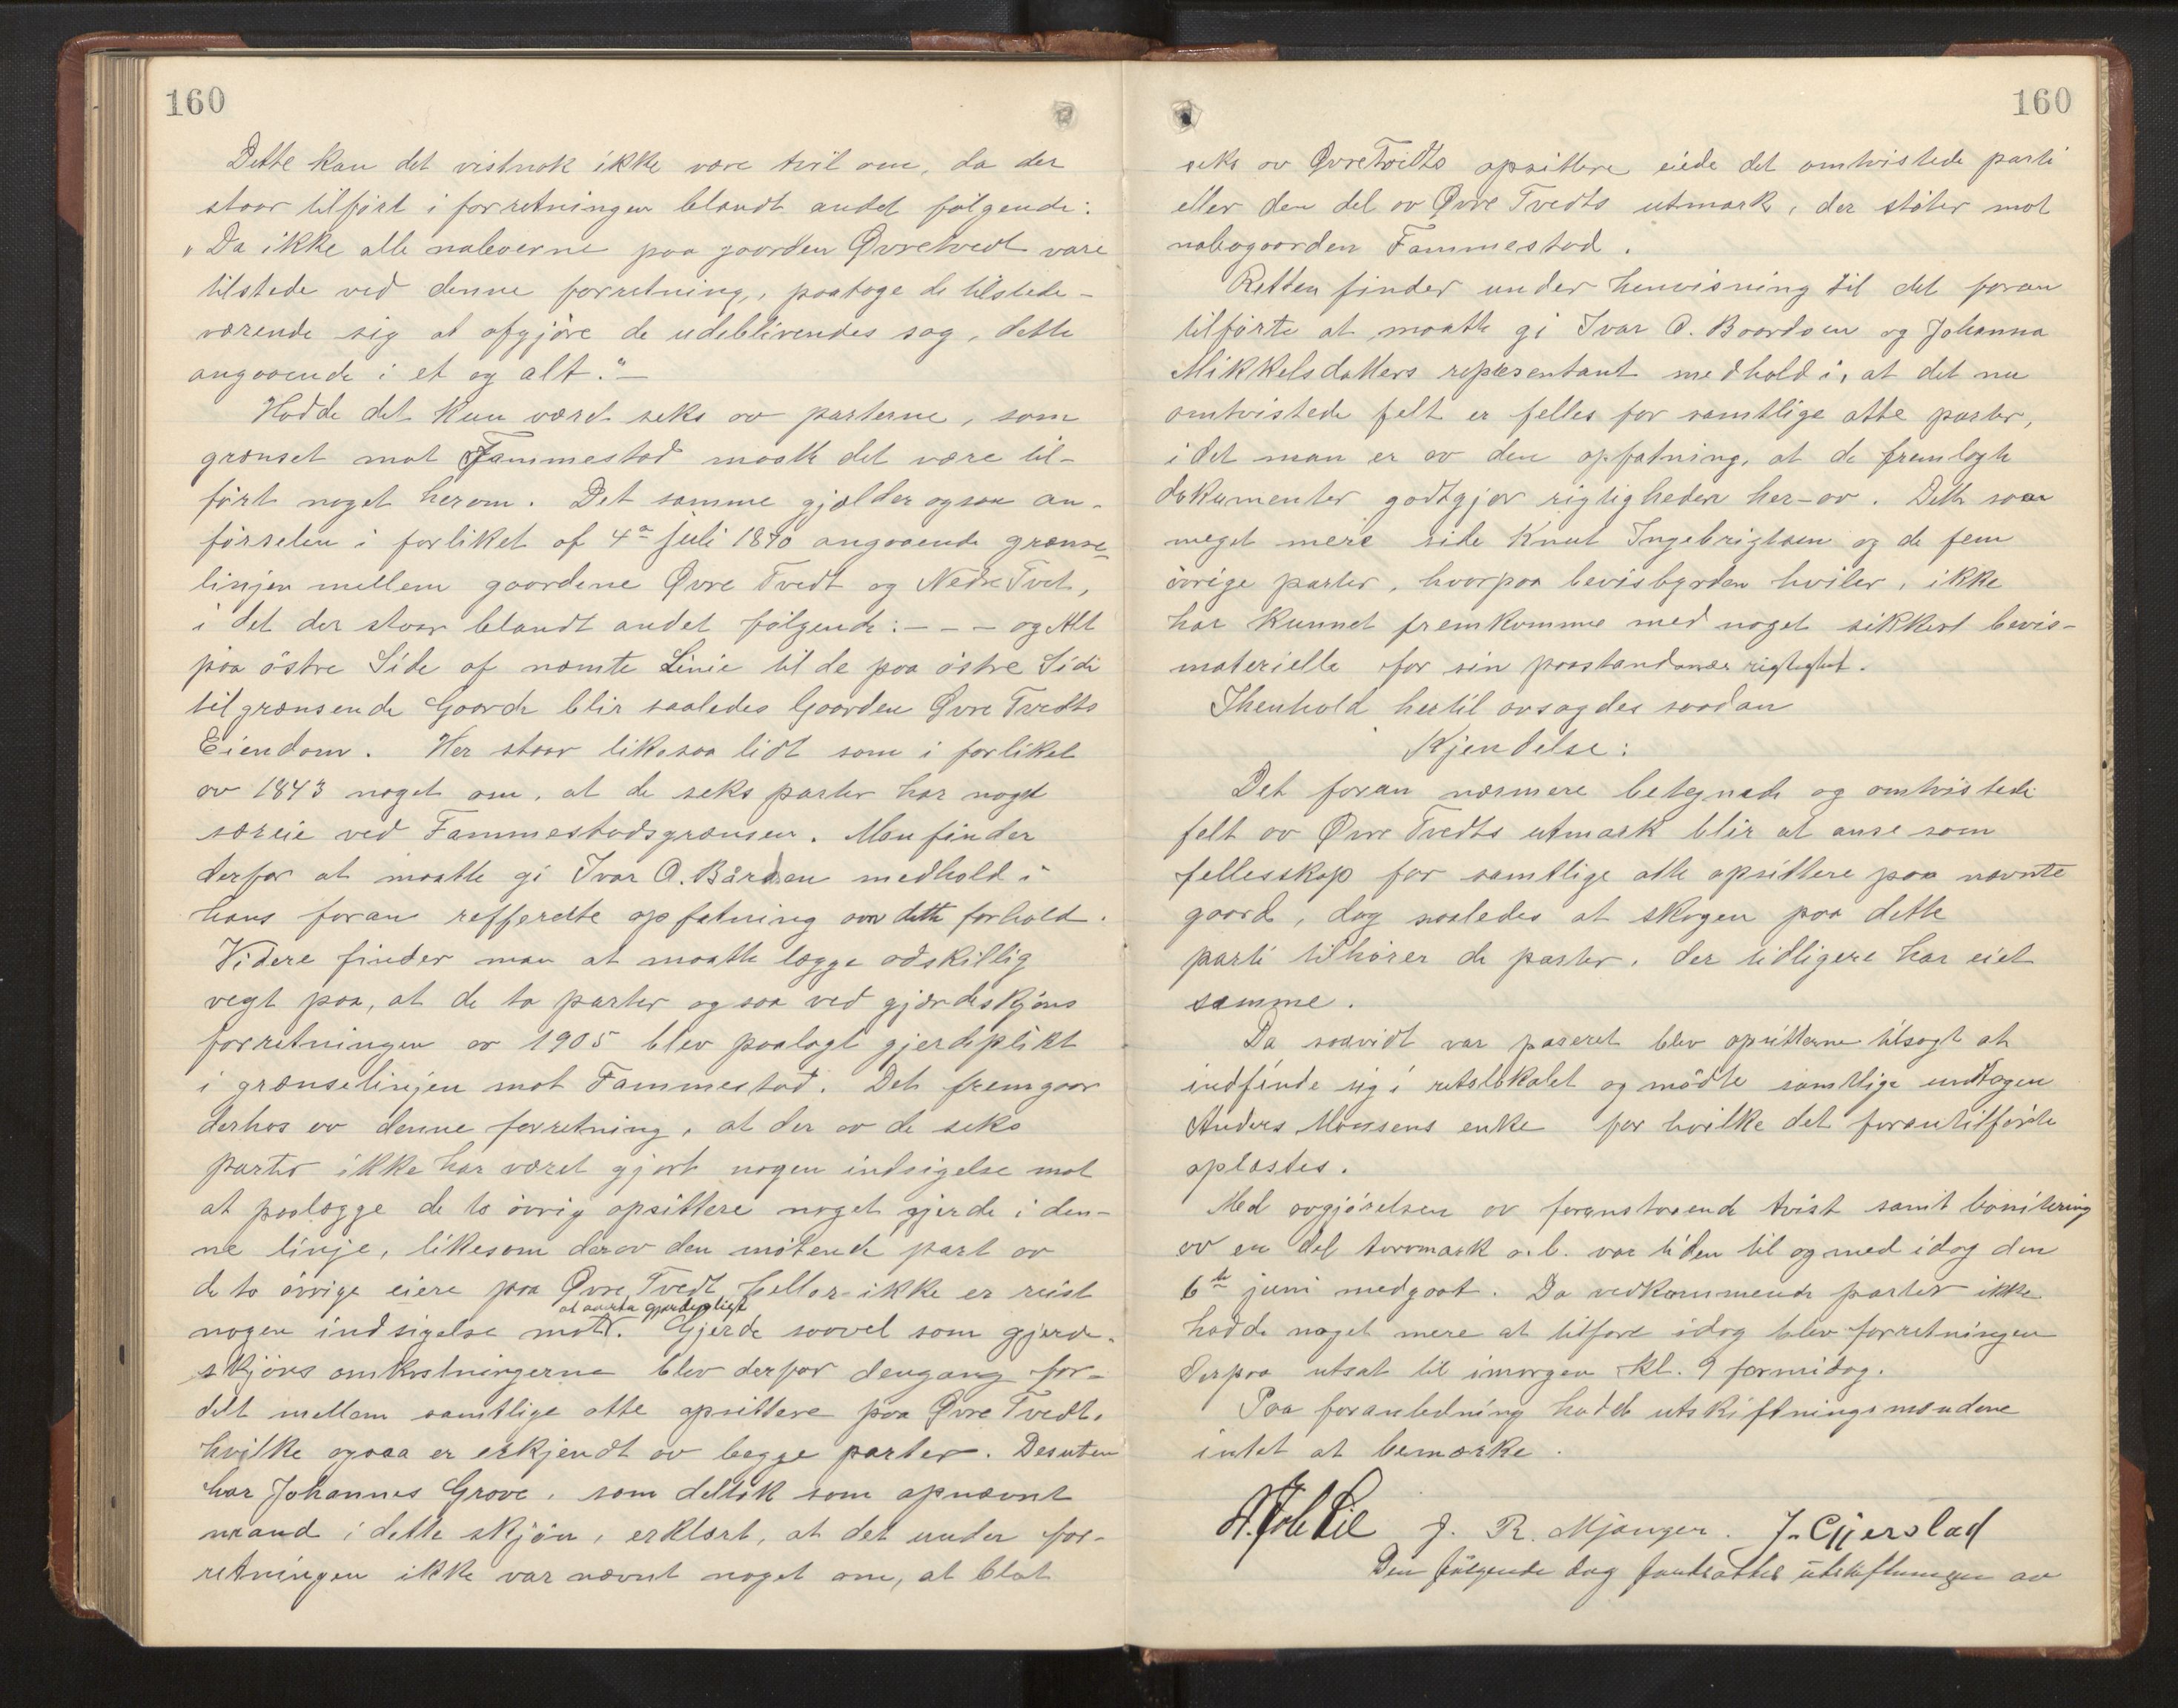 160
Dette kan det vistnok ikke være tvil om, da der
staar tilført i forretningen blandt andet følgende:
„Da ikke alle naboerne paa gaarden Øvretvedt vare
tilstede ved denne forretning, paatoge de tilstede-
værende sig at afgjøre de udeblivendes sag, dette
angaaende i et og alt."—
Hadde det kun været seks av parterne, som
grænset mot Fammestad maatte det være til-
ført noget herom. Det samme gjælder ogsaa an-
førselen i forliket af 4de juli 1870 angaaende grænse-
linjen mellem gaardene Øvre Tvedt og Nedre Tvet,
i det der staar blandt andet følgende: - - - og Alt
paa østre Side af nævnte Linie til de paa østre Side
tilgrænsende Gaarde blir saaledes Gaarden Øvre Tvedts
Eiendom. Her staar likesaa lidt som i forliket
av 1843 noget om, at de seks parter har noget
særeie ved Fammestadsgrænsen. Man finder
derfor at maatte gi Ivar O. Bårdsen medhold i
hans foran refferedte opfatning om dette forhold.
Videre finder man at maatte lægge adskillig
vegt paa, at de to parter ogsaa ved gjærdeskjøns
forretningen av 1905 blev paalagt gjerdeplikt
i grænselinjen mot Fammestad. Det fremgaar
derhos av denne forretning, at der av de seks
parter ikke har været gjort nogen indsigelse mot
at paalægge de to øvrig opsittere noget gjerde i den-
ne linje, likesom derav den møtende part av
de to øvrige eiere paa Øvre Tvedt heller ikke er reist
at motta gjerdepligt
nogen indsigelse mot. Gjerde saavel som gjerde-
skjøns omkostningerne blev derfor dengang for-
delt mellem samtlige otte opsittere paa Øvre Tvedt,
hvilke ogsaa er erkjendt av begge parter. Desuten
har Johannes Grove, som deltok som opnævnt
mand i dette skjøn, erklært, at det under for-
retningen ikke var nævnt noget om, at blot
160
seks av Øvre Tvedts opsittere eiede det omtvistede parti
eller den del av Øvre Tvedts utmark, der støter mot
nabogaarden Fammestad.
Retten finder under henvisning til det foran
tilførte at maatte gi Ivar O. Baardsen og Johanna
Mikkelsdatters repræsentant medhold i, at det nu
omtvistede felt er felles for samtlige otte parter,
idet man er av den opfatning, at de fremlagte
dokumenter godtgjør rigtigheden her-av. Dette saa
meget mere side Knut Ingebrigtsen og de fem
øvrige parter, hvorpaa bevisbyrden hviler, ikke
har kunnet fremkomme med noget sikkert bevis-
materielle for sin paastands rigtighet.
Ihenhold hertil avsagdes saadan
Kjendelse:
Det foran nærmere betegnede og omtvistede
felt av Øvre Tvedts utmark blir at anse som
fellesskap for samtlige otte opsittere paa nævnte
gaard, dog saaledes at skogen paa dette
parti tilhører de parter, der tidligere har eiet
samme.
Da saavidt var paseret blev opsitterne tilsagt at
indfinde sig i retslokalet og mødte samtlige undtagen
Anders Monsens enke for hvilke det forantilførte
oplæstes.
Med avgjørelsen av foranstaaende tvist samt bonitering
av en del torvmark o. l. var tiden til og med idag den
6te juni medgaat. Da vedkommende parter ikke
hadde noget mere at tilføre idag blev forretningen
derpaa utsat til imorgen kl. 9 formidag.
Paa foranledning hadde utskiftningsmændene
intet at bemærke.
J. R. Mjanger. J. Gjerstad
Den følgende dag fortsattes utskiftningen av